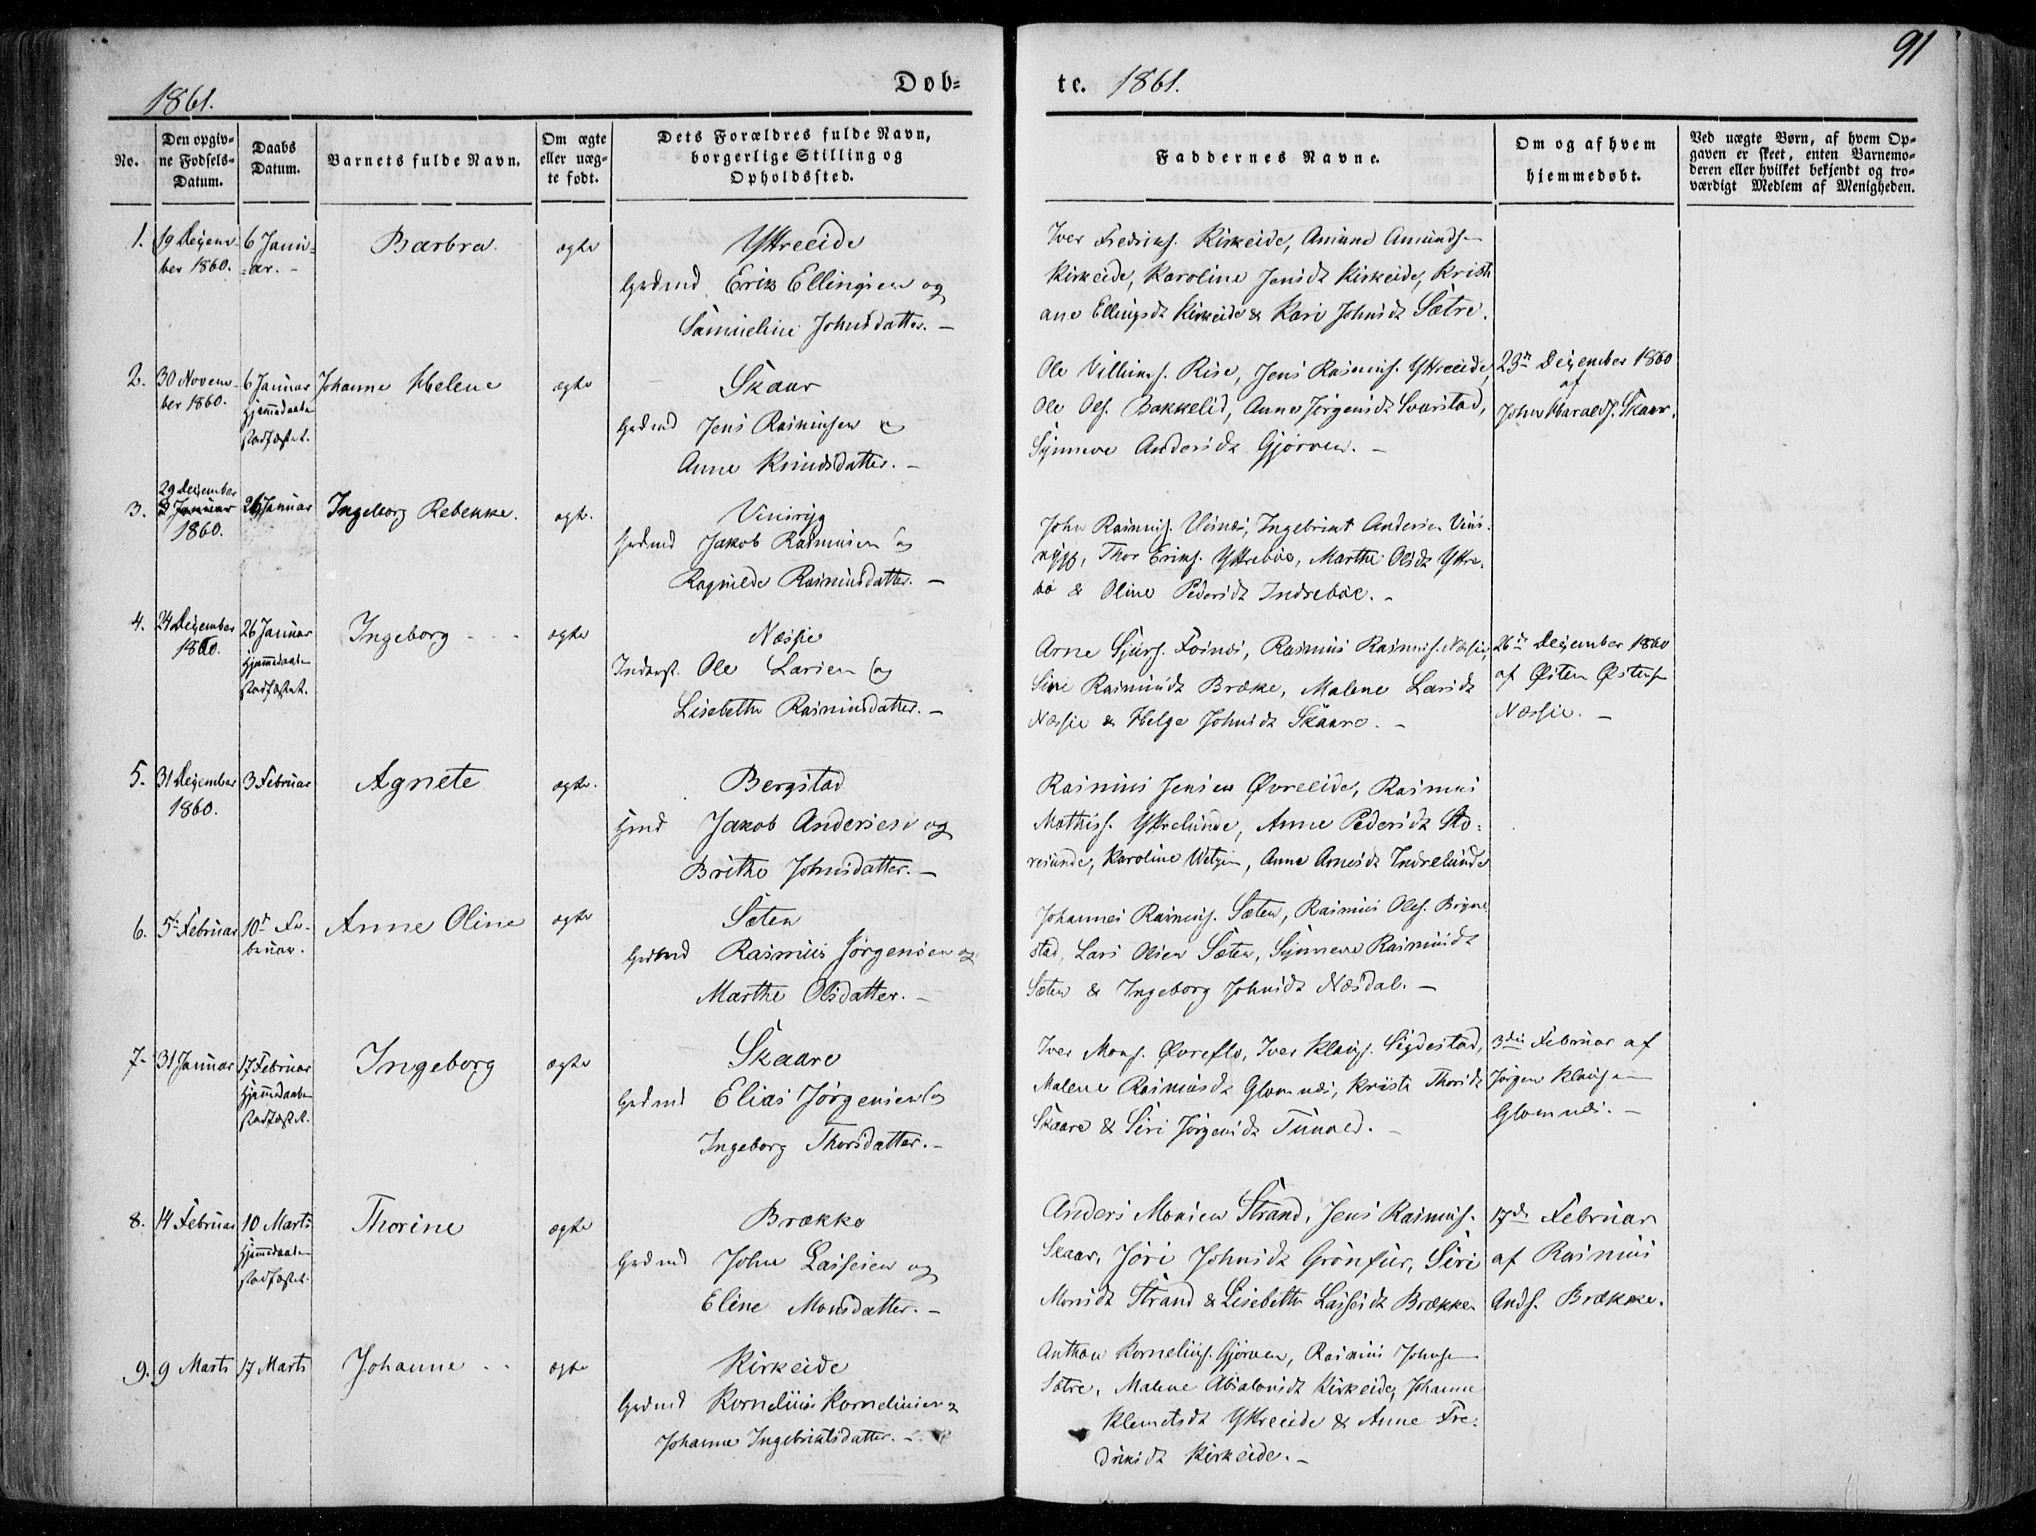 91
1861.
Døb-
te. 1861.
No.
Den opgiv-
ne Fødsels-
Datum.
Daabs
Datum.
Barnets fulde Navn.
Om ægte
eller uæg-
te født.
Dets Forældres fulde Navn,
borgerlige Stilling og
Opholdssted.
Faddernes Navne.
Om og af hvem
hjemmedøbt.
Ved uægte Børn, af hvem Op-
gaven er skeet, enten Barnemo-
deren eller hvilket bekjendt og tro-
værdigt Medlem af Menigheden.
1.
19 Deçem-
ber 1860.
6 Janu-
=ar. -
Barbra.
ægte
Yttreeide
Grdmd Erik Ellingsen og
Samueline Johnsdatter. -
Iver Fredriks. Kirkeide, Amund Amunds-
Kirkeide, Karoline Jensdt Kirkeide, Kristi
ane Ellingsdt Kirkeide & Kari Johnsdt Sætre.
2.
30 Novem-
ber 1860.
6 Januar
Hjemmedaaben
stadfæstet.
Johanne Helene
ægte
Skaar
Grdmd Jens Rasmusen og
Anne Knudsdatter. -
Ole Villums. Rise, Jens Rasmus. Yttreeide,
Ole Ols. Bakkelid, Anne Jørgensdt Svarstad,
Synneve Andersdt Gjørven. -
23de Deçember 1860
af
John Haralds. Skaar.
3.
29 Deçember
Januar
1860.
26 Januar
Ingeborg Rebekke.
ægte.
Vinsryg
Grdmd Jakob Rasmusen og
Ragnilde Rasmusdatter. -
John Rasmus. Visnæs, Ingebrikt Andersen Vins-
rygg, Thor Eriks. Yttrebøe, Marthe Olsdt Yttre-
bø & Oline Pedersdt Indrebøe. -
4.
24 Deçember
1860.
26 Januar
Hjemmedaaben
stadfæstet.
Ingeborg
ægte
Næssie
Inderst. Ole Larsen og
Lisebethe Rasmusdatter. -
Arne Sjurs. Fosnæs, Rasmus Rasmus. Næssie,
Siri Rasmusdt Bræke, Malene Larsdt
Næssie & Helge Johnsdt Skaare. -
26de Deçember 1860
af Østen Østens
Næssie. -
5.
31 Deçember
1860.
3 Februar
Agnete
ægte.
Bergstad
Hmd Jakob Andersen og
Brithe Johnsdatter. -
Rasmus Jensen Øvreeide, Rasmus
Mathiss. Yttrelunde, Anne Pedersdt Sto-
resunde, Karoline , Anne Arnesdt Indrelunde
6.
5te Februar
10de Fe-
bruar.
Anne Oline
ægte
Sæten
Grdmd Rasmus Jørgensen og
Marthe Olsdatter. -
Johannes Rasmus. Sæten, Rasmus Oles. Bryne-
stad, Lars Olsen Sæten, Synneve Rasmusdt
Sæten & Ingeborg Johnsdt Næsdal. -
7.
31 Januar
17 Februar
Hjemmedaaben
stadfæstet.
Ingeborg
ægte
Skaare
Grdmd Elias Jørgensen og
Ingeborg Thorsdatter. -
Iver Mons. Øvreflo, Iver Klaus. Sigdestad,
Malene Rasmusdt Glomnæs, Kristi Thorsdt
Skaare & Siri Jørgensdt Tunold. -
3die Februar af
Jørgen Klausen
Glomnæs. -
8.
14 Februar
10 Marts
Hjemmedaaben
stadfæstet.
Thorine
ægte
Brække
Grdmd John Lassesen og
Eline Monsdatter. -
Anders Monsen Strand, Jens Rasmus.
Skaar, Jøri Johnsdt Grønfur, Siri
Monsdt Strand & Lisebethe Lassesdt Brække
17de Februar
af Rasmus
Ands. Brække.
9.
9 Marts
17 Marts
Johanne
ægte
Kirkeide
Grdmd Kornelius Korneliusen &
Johanne Ingebriktsdatter. -
Anthon Kornelius. Gjørven, Rasmus Johnsen
Sætre, Malene Absalonsdt Kirkeide, Johanne
Klemetsdt Yttreeide & Anne Fre-
driksdt Kirkeide. -